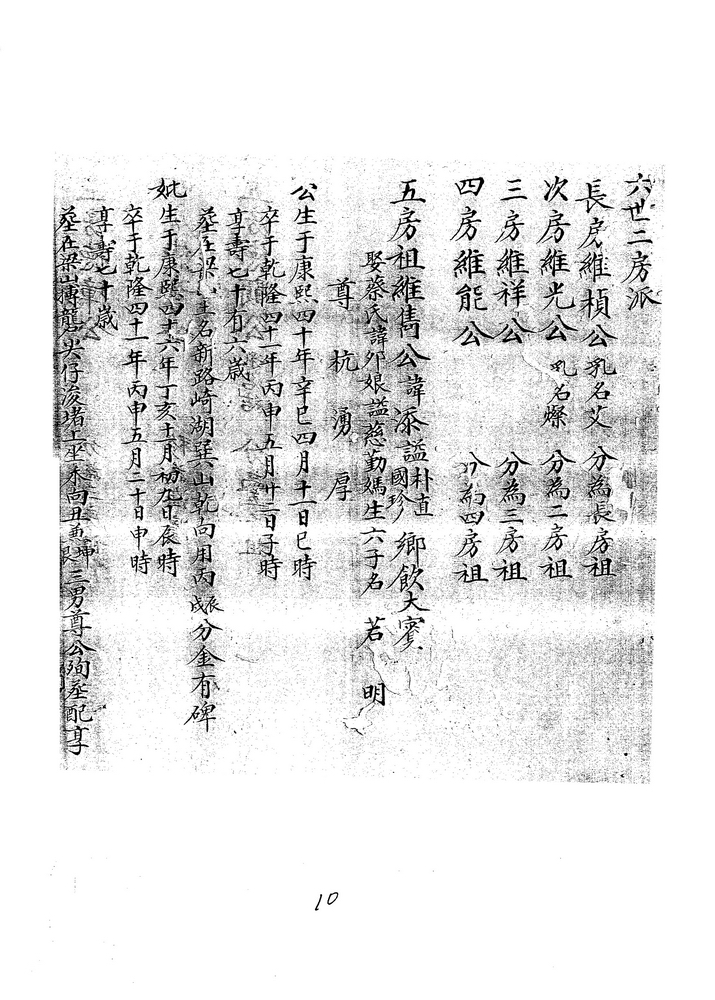 六世二房派
長房維楨公 乳名艾 分為長房祖
次房維光公 乳名燦 分為二房祖
三房維祥公 分為三房祖
四房維能公 分為四房祖
五房祖維雋公諱添謚朴直國珍鄉飲大賓
娶蔡氏諱卯娘謚慈勤媽生六子名 若 明
尊 杭 湧 厚
公生于康熙四十年辛巳四月十一日巳時
卒于乾隆四十一年丙申五月廿二日子時
享壽七十有六歲
葬在梁山土名新路崎湖巽山乾向用丙辰戌分金有碑
妣生于康熙四十六年丁亥十一月初九日辰時
卒于乾隆四十一年丙申五月二十日申時
享壽七十歲
葬在梁山 尖仔湊堵上坐未向丑兼坤艮三男尊公殉葬配享
10